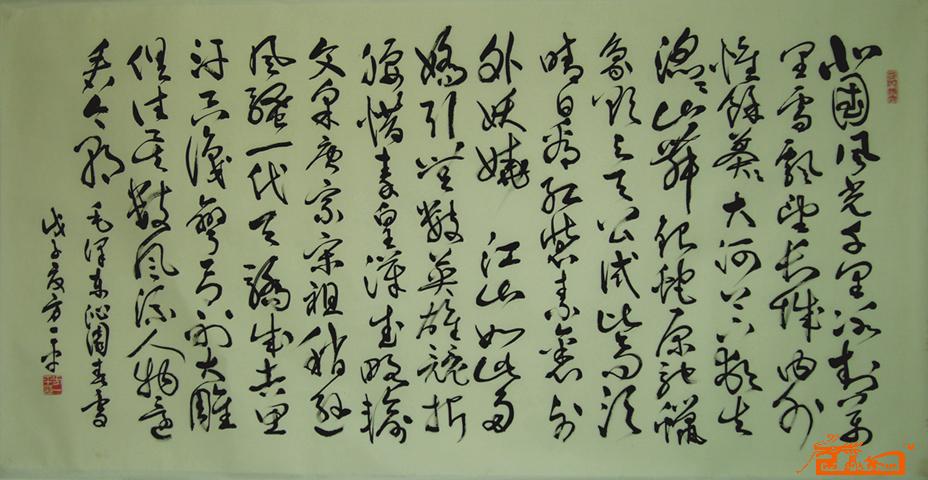 北國风光千里冰封万
里雪飘望长城内外
惟馀莽莽大河上下顿失
滔滔山舞银蛇原驰蜡
象欲与天公试比高须
晴日看红装素裹分
外妖娆 江山如此多
娇引无数英雄竞折
腰惜秦皇汉武略输
文采唐宗宋祖稍逊
风骚一代天骄成吉思
汗只识弯弓射大雕
俱往矣数风流人物还
看今朝 毛泽东沁园春雪
戊子夏方一平